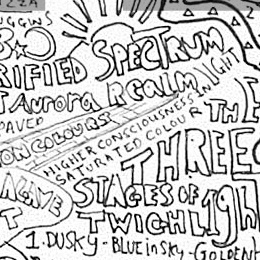 IZZA
UGGINS
SPECTRUM
RIFIED
LIGHT
AURORA REALM
IN
PAVED
TH
ON COLOURS
HIGHER CONSCIOUSNESS
SATURATED COLOUR
THREE
ALIVE
STAGES OF
TWIGHLIGHT
1. DUSKY - BLUE in SKY - GOLDEN